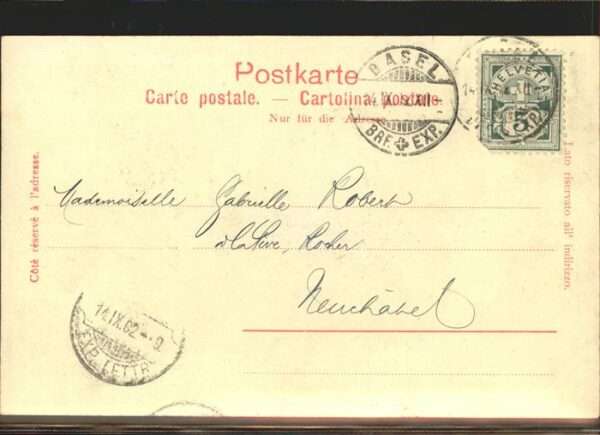 Postkarte
Carte postale. — Cartolina postale.
Nur für die Adresse
BASEL
BRF. EXP.
HELVETIA
5
Côté réservé à l'adresse.
Lato riservato all' indirizzo.
Mademoiselle Gabrielle Robert
Rocher
Neuchâtel
14.IX.02
EXP. LETTR